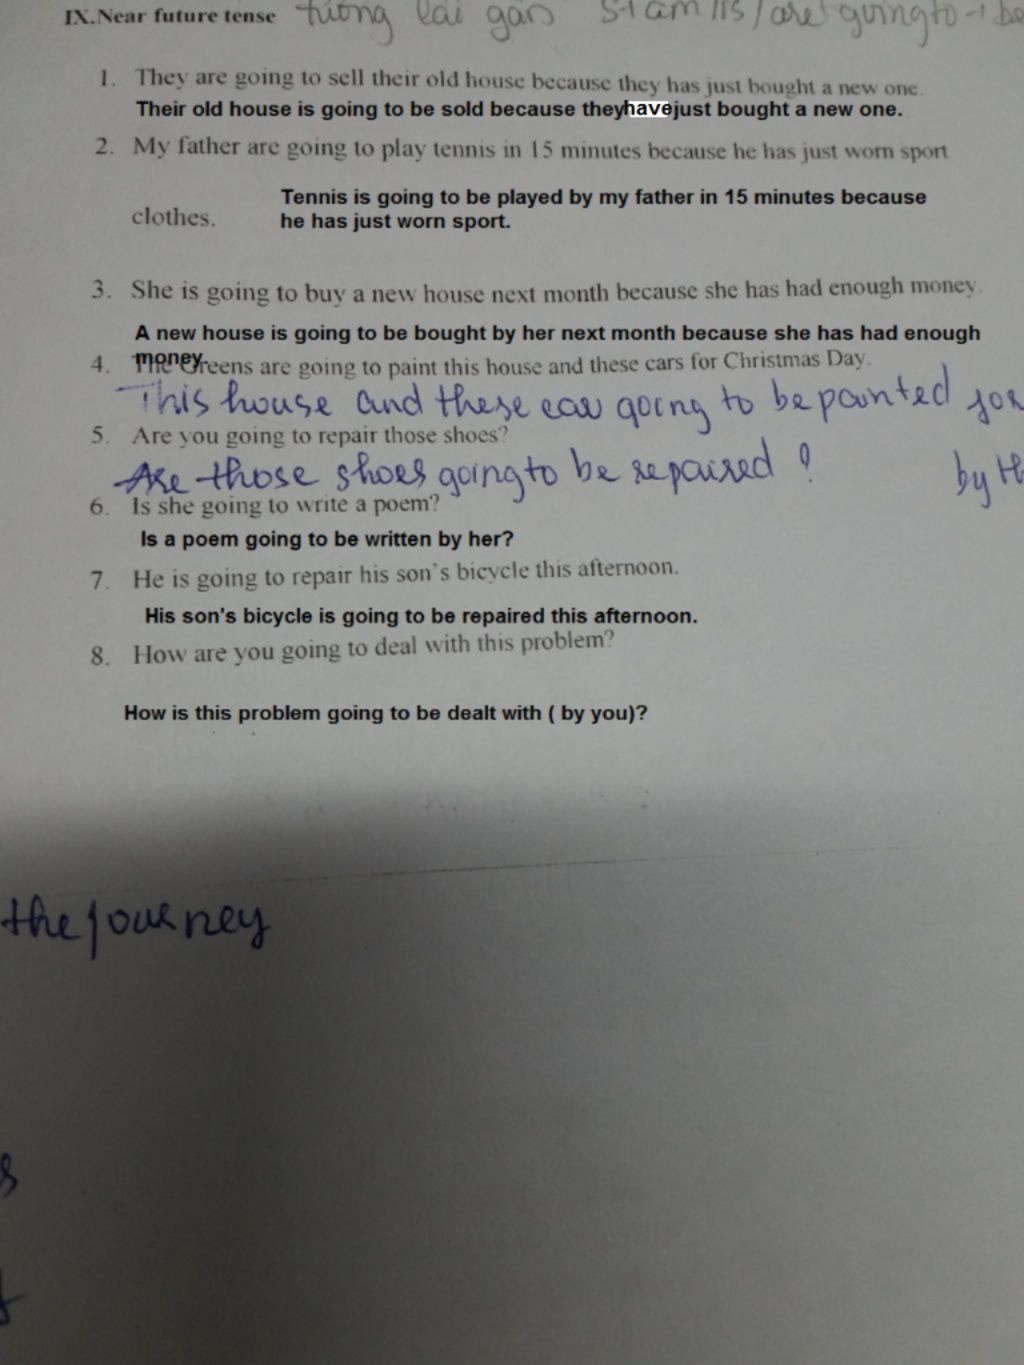 IX.Near future tense tương lai gần S+am/is/are+going to+be
1. They are going to sell their old house because they has just bought a new one.
Their old house is going to be sold because theyhavejust bought a new one.
2. My father are going to play tennis in 15 minutes because he has just worn sport
Tennis is going to be played by my father in 15 minutes because
clothes. he has just worn sport.
3. She is going to buy a new house next month because she has had enough money.
A new house is going to be bought by her next month because she has had enough
money.
4. The Greens are going to paint this house and these cars for Christmas Day.
This house and these car going to be painted for
5. Are you going to repair those shoes?
Are those shoes going to be repaired? by th
6. Is she going to write a poem?
Is a poem going to be written by her?
7. He is going to repair his son's bicycle this afternoon.
His son's bicycle is going to be repaired this afternoon.
8. How are you going to deal with this problem?
How is this problem going to be dealt with ( by you)?
the journey